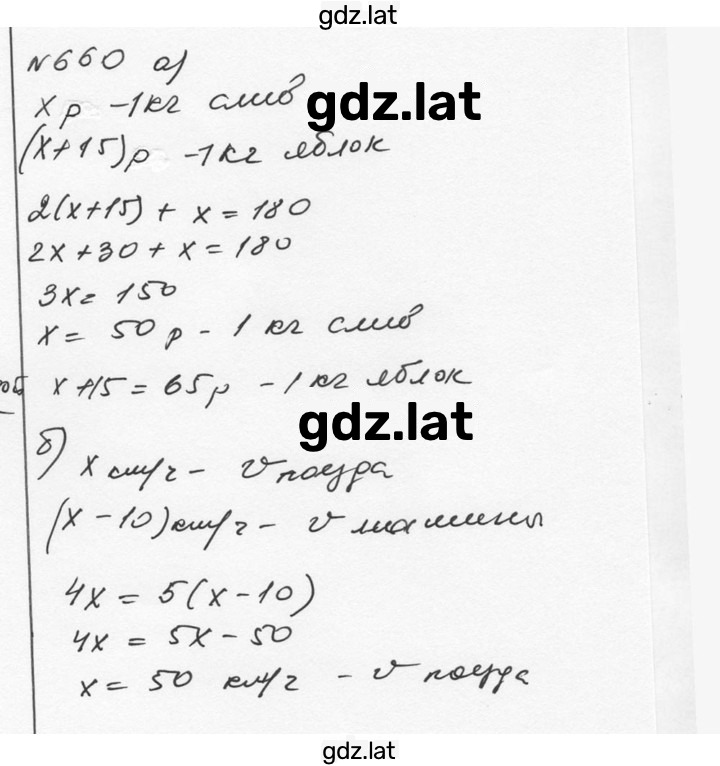 gdz.lat
№660 а)
x р - 1 кг слив
gdz.lat
(x+15) р - 1 кг яблок
2(x+15) + x = 180
2x + 30 + x = 180
3x = 150
x = 50 р - 1 кг слив
x+15 = 65 р - 1 кг яблок
gdz.lat
б) x км/ч - v поезда
(x - 10) км/ч - v машины
4x = 5(x - 10)
4x = 5x - 50
x = 50 км/ч - v поезда
gdz.lat